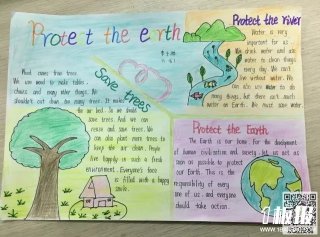 Protect the earth
Protect the river
Water is very
important for us.
We drink water and
use water to clean things
every day. We can't
live without water. We
can use it to do so
many things, but there isn't much
water on Earth. We must save water.
Save trees
Most comes from trees.
We use wood to make tables,
chairs and many other things. We
shouldn't cut down too many trees. It makes
the air bad. So we should
save trees. And we can
reuse and save trees. We
can also plant more trees to
keep the air clean. People
live happily in such a fresh
environment. Everyone's face
is filled with a happy
smile.
Protect the Earth
The Earth is our home. For the development
of human civilization and society, let us act as
soon as possible to protect
our Earth. This is the
responsibility of every
one of us, and everyone
should take action.